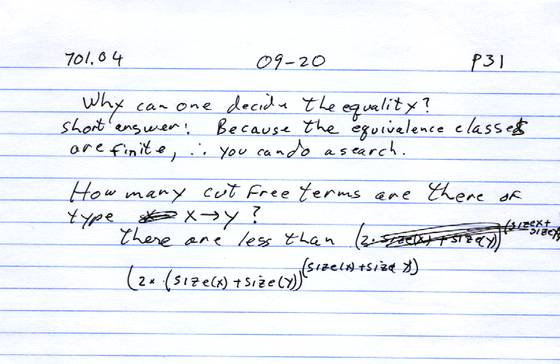 701.04 09-20 P31
Why can one decide the equality?
short answer: Because the equivalence classes
are finite, ∴ you can do a search.
How many cut free terms are there of
type X→Y?
There are less than (2·size(x)+size(y))^(size x + size y)
(2× (size(x)+size(y))^(size(x)+size y)